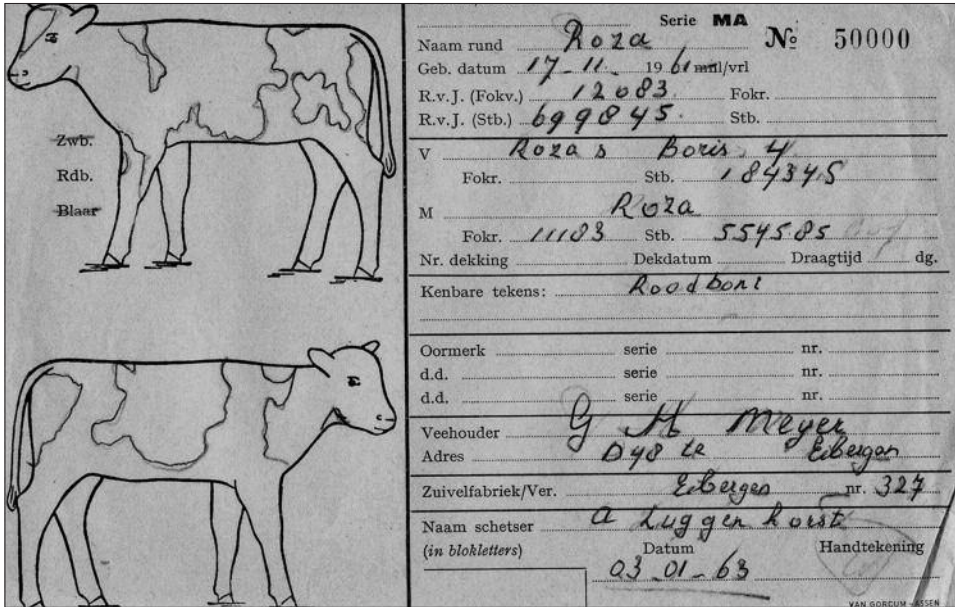 Serie MA No 50000
Naam rund Roza
Geb. datum 17-11-1961 mnl/vrl
R.v.J. (Fokv.) 12083 Fokr.
R.v.J. (Stb.) 699845 Stb.
Zwb.
Rdb.
Blaar
V Roza s Boris 4
Fokr. Stb. 184345
M Roza
Fokr. 11183 Stb. 554585
Nr. dekking Dekdatum Draagtijd dg.
Kenbare tekens: Roodbont
Oormerk serie nr.
d.d. serie nr.
d.d. serie nr.
Veehouder G H Meyer
Adres D48 te Eibergen
Zuivelfabriek/Ver. Eibergen nr. 327
Naam schetser A Luggenhorst
(in blokletters) Datum Handtekening
03-01-63
VAN GORCUM - ASSEN